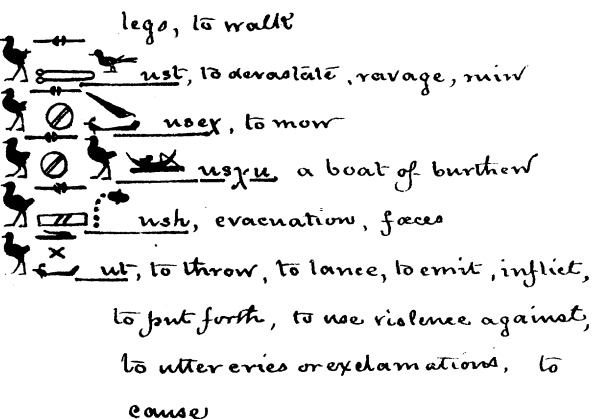 legs, to walk
ust, to devastate, ravage, ruin
useχ, to mow
usχu, a boat of burthen
ush, evacuation, fœces
ut, to throw, to lance, to emit, inflict,
to put forth, to use violence against,
to utter cries or exclamations, to
cause